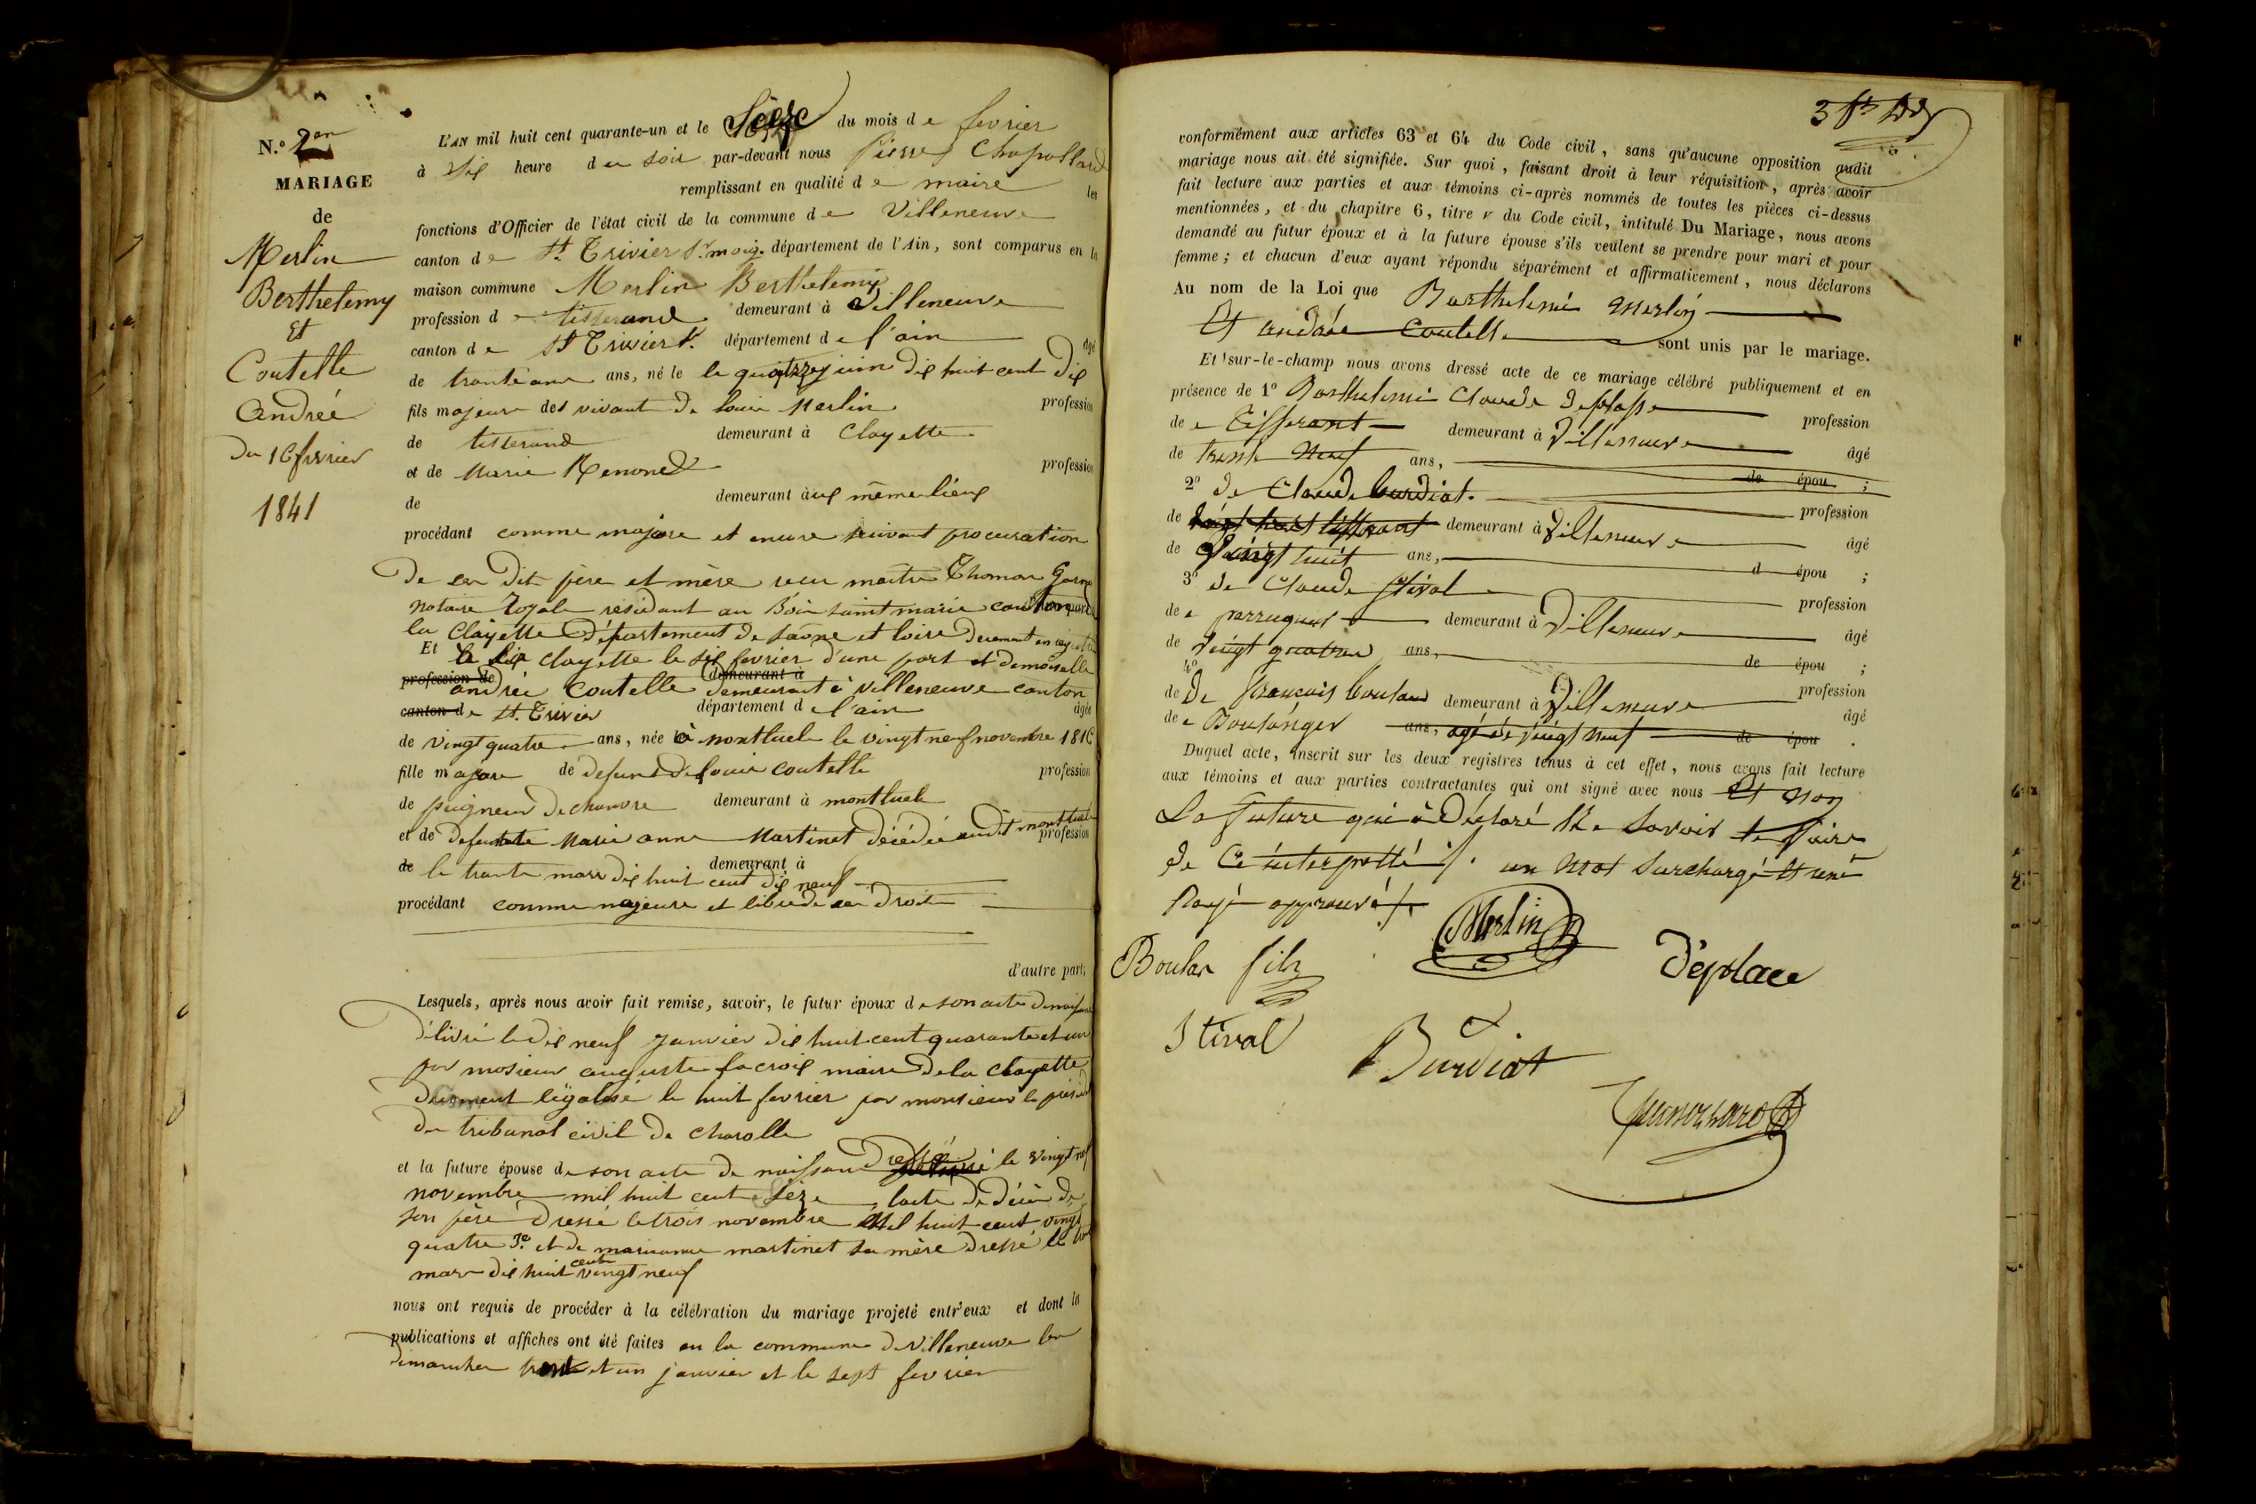 N.º 2
MARIAGE
de
Merlin
Berthelemy
Et
Coutelle
Andréé
Du 16 fevrier
1841
L'AN mil huit cent quarante-un et le Séize du mois de fevrier
à Six heure du soir par-devant nous Pierre Chapollard
remplissant en qualité de maire les
fonctions d'Officier de l'état civil de la commune de Villeneuve
canton de St. Trivier sr. moig. département de l'Ain, sont comparus en la
maison commune Merlin Berthelemy
profession de tisserand demeurant à Villeneuve
canton de St Trivier sr. département de l'ain âgé
de trante ans ans, né le le quatorze juin dix huit cent dix
fils majeure des vivant de louis Merlin profession
de tisserand demeurant à Clayette
et de Marie Remoned profession
de demeurant aux même lieux
procédant comme majore et encore suivant procuration
de ses dit père et mère reçu maitre Thomas
notaire Royale résidant au Bois saint marie canton
la Clayette département de Saône et loire
Et la Clayette le six fevrier d'une part et demoiselle
profession de demeurant à
andrée Coutelle demeurant à Villeneuve canton
canton de St. Trivier département de l'ain âgée
de vingt quatre ans, née à montluel le vingt neuf novembre 1816
fille majore de defunt de louis coutelle profession
de peigneur de chanvre demeurant à montluel
et de defunte Marie anne Martinet décédée au dit montluel profession
de le trante mars dix huit cent dix neuf demeurant à
procédant comme majeure et libre de ses droits
d'autre part;
Lesquels, après nous avoir fait remise, savoir, le futur époux de son acte de naissance
délivré le dix neuf janvier dix huit cent quarante et un
par mosieur auguste lacroix maire de la Clayette
dûment légalisé le huit fevrier par monsieur le présid
du tribunal civil de charolle
et la future épouse de son acte de naissance dressé le vingt neuf
novembre mil huit cent séze, lacte de décès de
son père dressé le trois novembre Mil huit cent vingt
quatre 3.º et de marianne martinet sa mère dressé le
mars dix huit cent vingt neuf
nous ont requis de procéder à la célébration du mariage projeté entr'eux et dont la
publications et affiches ont été faites en la commune de Villeneuve les
dimanches trente et un janvier et le sept fevrier
conformément aux articles 63 et 64 du Code civil, sans qu'aucune opposition audit
mariage nous ait été signifiée. Sur quoi, faisant droit à leur réquisition, après avoir
fait lecture aux parties et aux témoins ci-après nommés de toutes les pièces ci-dessus
mentionnées, et du chapitre 6, titre v du Code civil, intitulé Du Mariage, nous avons
demandé au futur époux et à la future épouse s'ils veulent se prendre pour mari et pour
femme; et chacun d'eux ayant répondu séparément et affirmativement, nous déclarons
Au nom de la Loi que Barthelemi Merlin
Et andrée Coutelle sont unis par le mariage.
Et sur-le-champ nous avons dressé acte de ce mariage célébré publiquement et en
présence de 1º Barthelemi Claude Deplasse profession
de Tisserant demeurant à Villeneuve âgé
de trente Neuf ans, de épou ;
2º de Claude Burdiat profession
de tisserant demeurant à Villeneuve âgé
de Vingt huit ans, d épou ;
3º de Claude Stival profession
de perruquier demeurant à Villeneuve âgé
de Vingt quatre ans, de épou ;
4º
de De françois Boulan demeurant à Villeneuve profession
de Boulanger ans, agé de vingt neuf de épou âgé
Duquel acte, inscrit sur les deux registres tenus à cet effet, nous avons fait lecture
aux témoins et aux parties contractantes qui ont signé avec nous Et Non
La future qui à Déclaré Ne Savoir le faire
de Ce interpellé /. un Mot Surchargé Et une
Rayé approuvé /.
Merlin
Boulan fils
Déplace
Stival
Burdiat